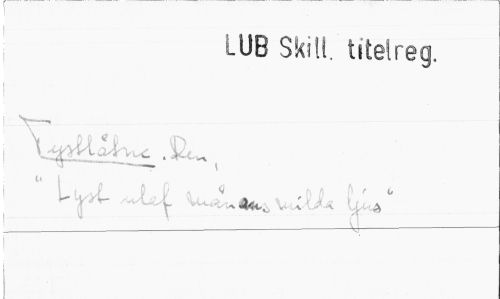 LUB Skill. titelreg.
Tystlåtne. Den,
"Lyst utaf månans milda ljus"